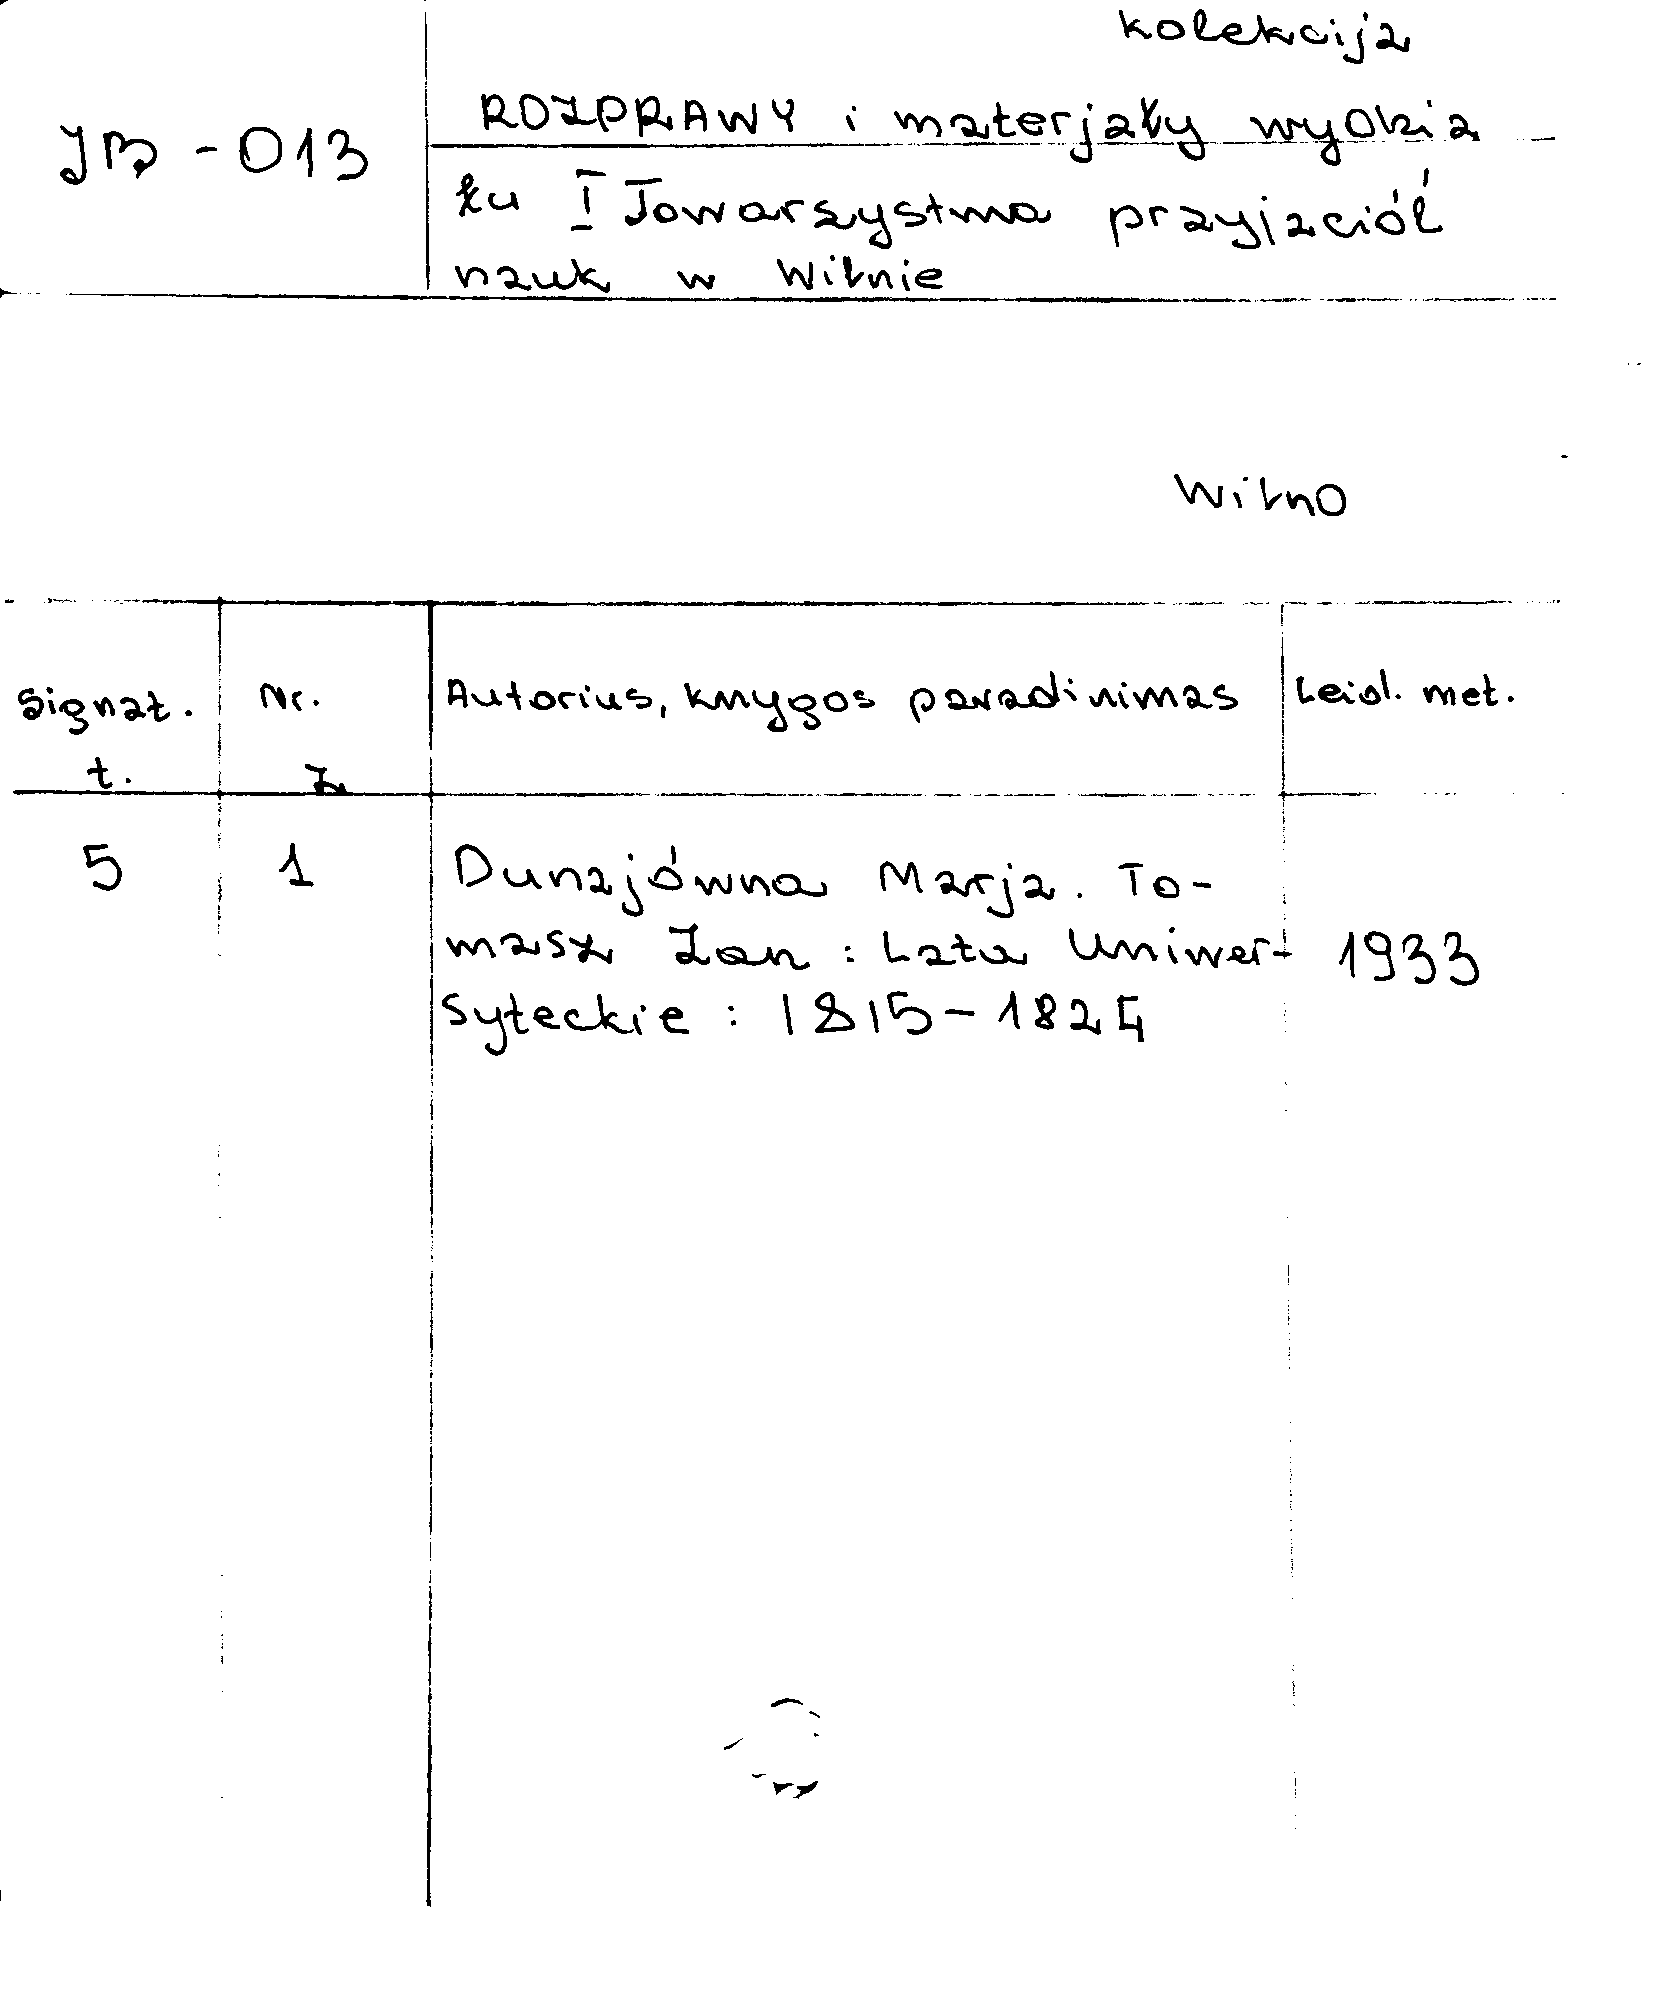 kolekcija
JB - 013
ROZPRAWY i materjały wydzia
łu I Towarzystwa przyjaciół
nauk w Wilnie
Wilno
Signat. Nr. Autorius, knygos pavadinimas Leid. met.
t. z
5 1 Dunajówna Marja. To-
masz Zan : Lata Uniwer- 1933
syteckie : 1815 - 1824